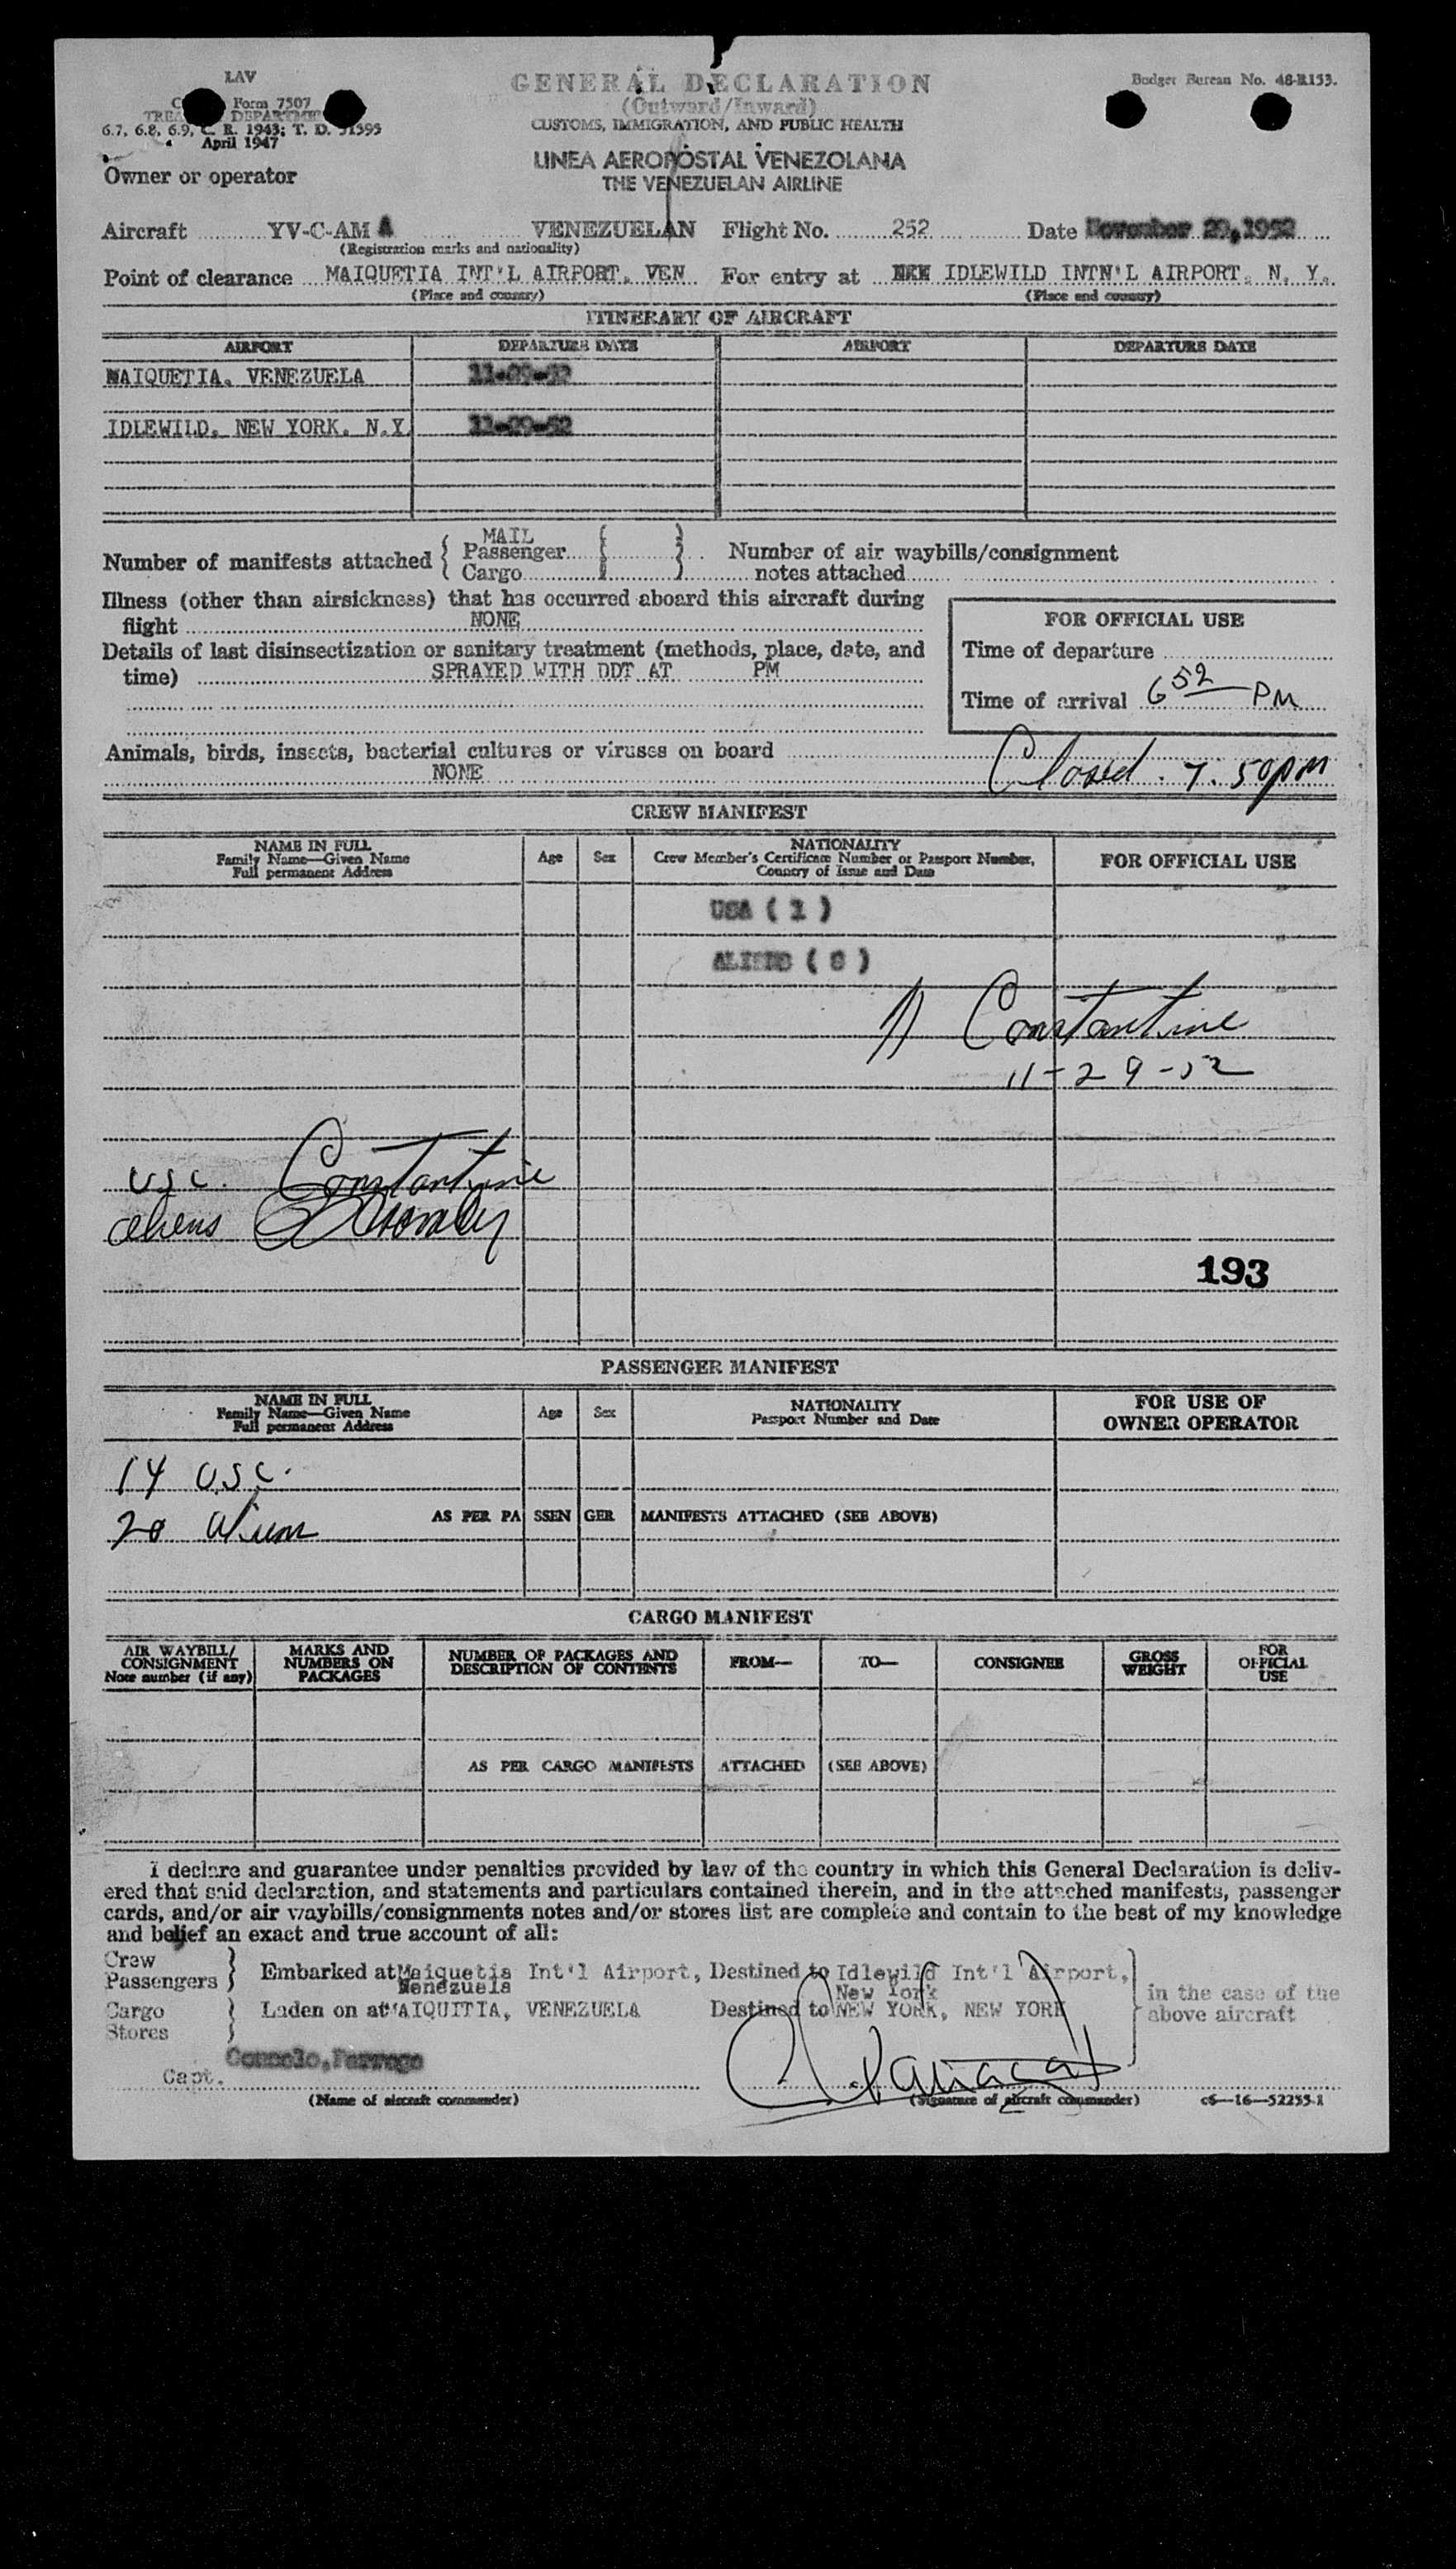 LAV
Form 7507
TREA DEPARTMENT
6.7, 6.8, 6.9, C. R. 1943; T. D. 51595
April 1947
GENERAL DECLARATION
(Outward/Inward)
CUSTOMS, IMMIGRATION, AND PUBLIC HEALTH
LINEA AEROPOSTAL VENEZOLANA
THE VENEZUELAN AIRLINE
Budget Bureau No. 48-R153.
Owner or operator
Aircraft YV-C-AM A VENEZUELAN Flight No. 252 Date November 29, 1952
(Registration marks and nationality)
Point of clearance MAIQUETIA INT'L AIRPORT, VEN For entry at IDLEWILD INTN'L AIRPORT, N. Y.
(Place and country) (Place and country)
ITINERARY OF AIRCRAFT
AIRPORT DEPARTURE DATE AIRPORT DEPARTURE DATE
MAIQUETIA, VENEZUELA 11-29-52
IDLEWILD, NEW YORK, N.Y. 11-29-52
MAIL
Number of manifests attached Passenger Number of air waybills/consignment
Cargo notes attached
Illness (other than airsickness) that has occurred aboard this aircraft during
flight NONE
Details of last disinsectization or sanitary treatment (methods, place, date, and
time) SPRAYED WITH DDT AT PM
FOR OFFICIAL USE
Time of departure
Time of arrival 6 52 PM
Animals, birds, insects, bacterial cultures or viruses on board
NONE
Closed. 7.50pm
CREW MANIFEST
NAME IN FULL
Family Name—Given Name
Full permanent Address
Age Sex
NATIONALITY
Crew Member's Certificate Number or Passport Number,
Country of Issue and Date
FOR OFFICIAL USE
USA ( 1 )
ALIENS ( 8 )
Constantine
11-29-52
usc. Constantine
aliens
193
PASSENGER MANIFEST
NAME IN FULL
Family Name—Given Name
Full permanent Address
Age Sex
NATIONALITY
Passport Number and Date
FOR USE OF
OWNER OPERATOR
14 U.S.C.
20 alien AS PER PASSENGER MANIFESTS ATTACHED (SEE ABOVE)
CARGO MANIFEST
AIR WAYBILL/
CONSIGNMENT
Note number (if any)
MARKS AND
NUMBERS ON
PACKAGES
NUMBER OF PACKAGES AND
DESCRIPTION OF CONTENTS
FROM— TO— CONSIGNEE
GROSS
WEIGHT
FOR
OFFICIAL
USE
AS PER CARGO MANIFESTS ATTACHED (SEE ABOVE)
I declare and guarantee under penalties provided by law of the country in which this General Declaration is deliv-
ered that said declaration, and statements and particulars contained therein, and in the attached manifests, passenger
cards, and/or air waybills/consignments notes and/or stores list are complete and contain to the best of my knowledge
and belief an exact and true account of all:
Crew
Passengers Embarked at Maiquetia Int'l Airport, Destined to Idlewild Int'l Airport,
Venezuela New York
in the case of the
above aircraft
Cargo Laden on at MAIQUITIA, VENEZUELA Destined to NEW YORK, NEW YORK
Stores
Capt.
(Name of aircraft commander) (Signature of aircraft commander) c6—16—52255-1